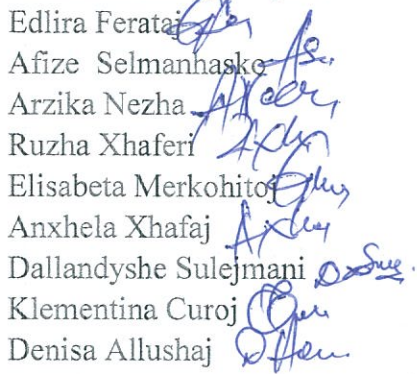 Edlira Ferataj
Afize Selmanhasko
Arzika Nezha
Ruzha Xhaferi
Elisabeta Merkohitoj
Anxhela Xhafaj
Dallandyshe Sulejmani
Klementina Curoj
Denisa Allushaj